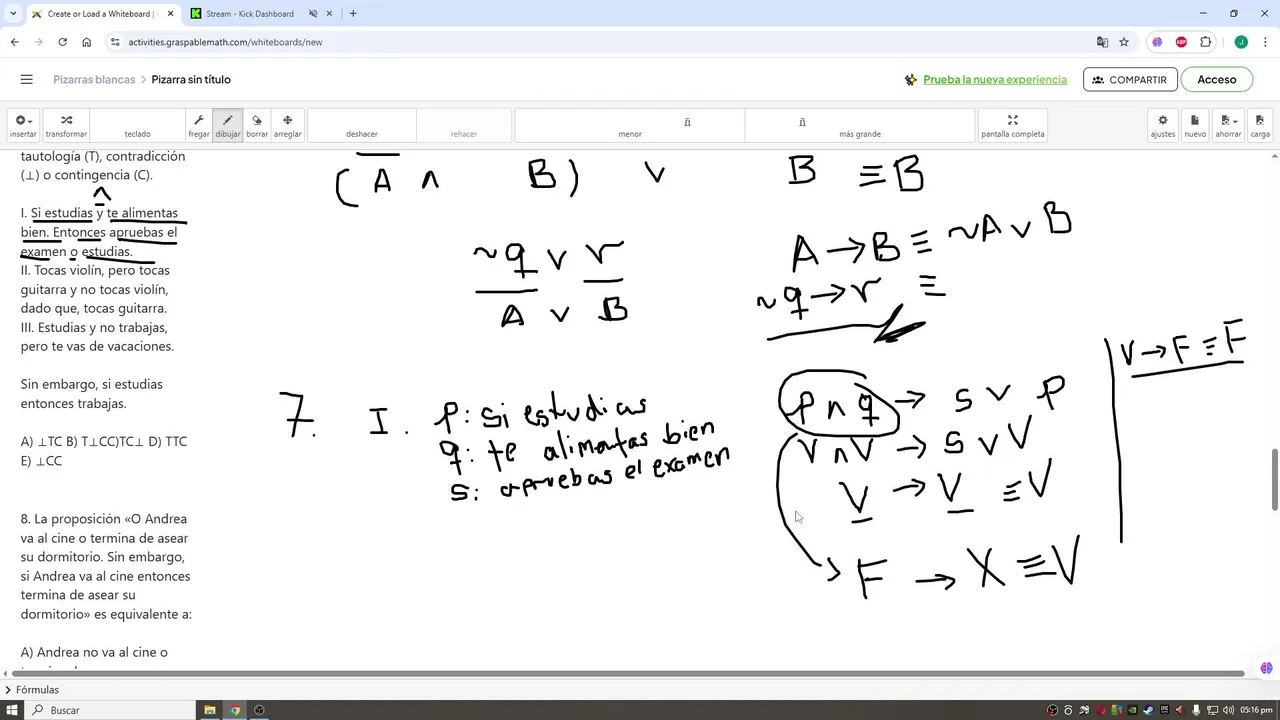 Create or Load a Whiteboard |
Stream - Kick Dashboard
activities.graspablemath.com/whiteboards/new
Pizarras blancas > Pizarra sin título
Prueba la nueva experiencia
COMPARTIR
Acceso
insertar
transformar
teclado
fregar
dibujar
borrar
arreglar
deshacer
rehacer
menor
más grande
pantalla completa
ajustes
nuevo
ahorrar
carga
tautología (T), contradicción
(⊥) o contingencia (C).
I. Si estudias y te alimentas
bien. Entonces apruebas el
examen o estudias.
II. Tocas violín, pero tocas
guitarra y no tocas violín,
dado que, tocas guitarra.
III. Estudias y no trabajas,
pero te vas de vacaciones.
Sin embargo, si estudias
entonces trabajas.
A) ⊥TC B) T⊥CC)TC⊥ D) TTC
E) ⊥CC
8. La proposición «O Andrea
va al cine o termina de asear
su dormitorio. Sin embargo,
si Andrea va al cine entonces
termina de asear su
dormitorio» es equivalente a:
A) Andrea no va al cine o
∧
(A ∧ B) ∨ B ≡ B
~q ∨ r
A ∨ B
A → B ≡ ~A ∨ B
~q → r ≡
7. I. p: si estudias
q: te alimentas bien
s: apruebas el examen
p ∧ q → s ∨ p
V ∧ V → s ∨ V
V → V ≡ V
F → X ≡ V
V → F ≡ F
Fórmulas
Buscar
05:16 pm